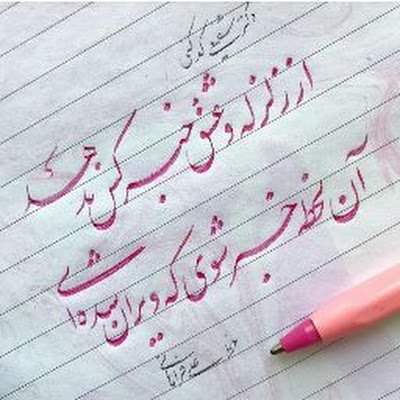 دکتر شفیعی کدکنی
از زلزله و عشق خبر کس ندهد
آن لحظه خبر شوی که ویران شده‌ای